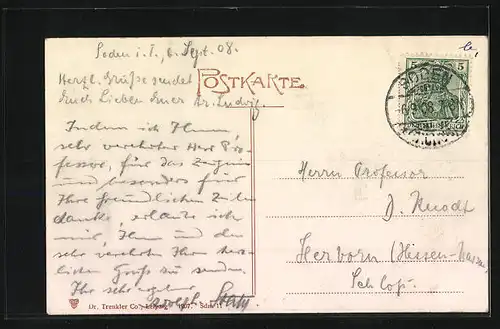 Soden i. T., 6. Sept. 08.
Herzl. Grüße sendet
Euch Lieben Euer Dr. Ludwig.
POSTKARTE.
5 5
SODEN
6.9.08
DEUTSCHES REICH
(TAUNUS)
Indem ich Ihnen,
sehr verehrter Herr Pro-
fessor, für das Zeugnis
und besonders für
Ihre freundlichen Zeilen
danke, erlaube ich
mir, Ihnen und den
sehr verehrten Ihren herz-
lichen Gruß zu senden.
Ihr sehr ergebener
Herrn Professor
D. Knodt
Herborn (Hessen-Nassau)
Schloß.
Dr. Trenkler Co., Leipzig. 1907.